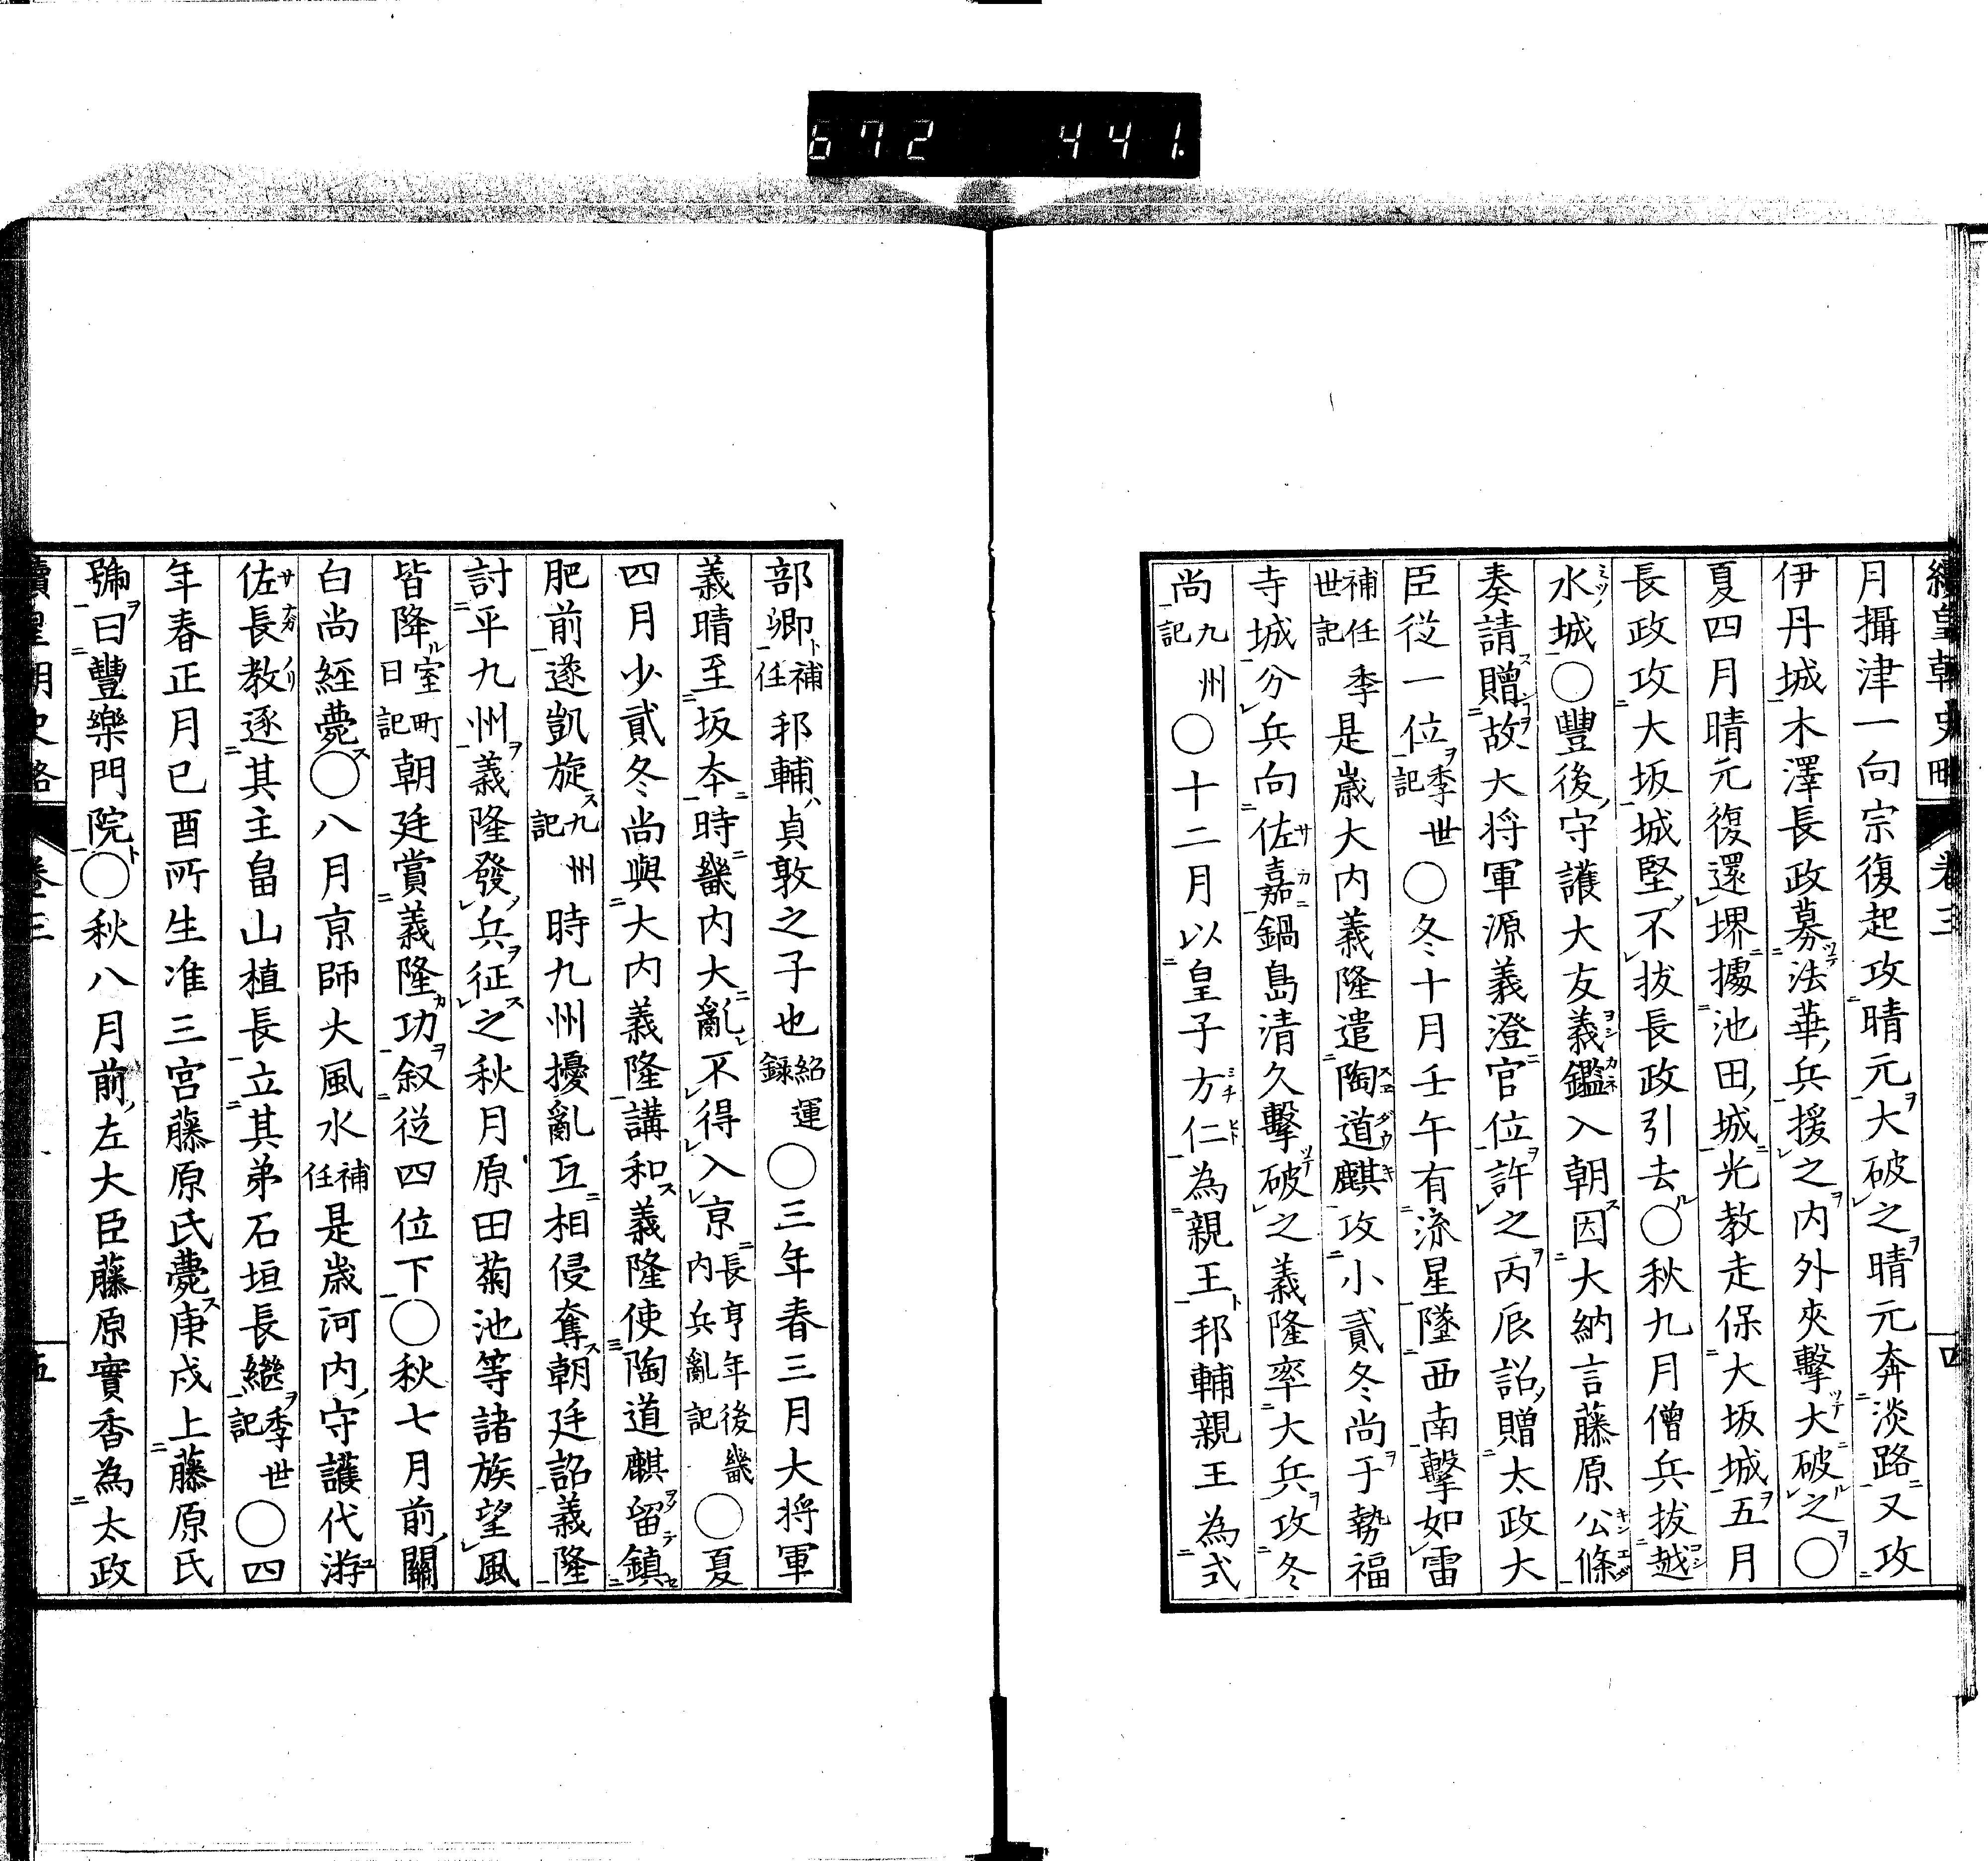 672 441.
續皇朝史略 卷三 四
月攝津一向宗復起攻晴元大破之晴元奔淡路又攻
伊丹城木澤長政募法華兵援之内外夾擊大破之〇
夏四月晴元復還堺據池田城光教走保大坂城五月
長政攻大坂城堅不拔長政引去〇秋九月僧兵拔越
水城〇豐後守護大友義鑑入朝因大納言藤原公條
奏請贈故大将軍源義澄官位許之丙辰詔贈太政大
臣從一位季世記〇冬十月壬午有流星墜西南擊如雷
補任季世記是歲大内義隆遣陶道麒攻小貳冬尚于勢福
寺城分兵向佐嘉鍋島清久擊破之義隆率大兵攻冬
尚九州記〇十二月以皇子方仁為親王邦輔親王為式
部卿補任邦輔貞敦之子也紹運録〇三年春三月大将軍
義晴至坂本時畿内大亂不得入京長亨年後畿内兵亂記〇夏
四月少貳冬尚與大内義隆講和義隆使陶道麒留鎮
肥前遂凱旋九州記時九州擾亂互相侵奪朝廷詔義隆
討平九州義隆發兵征之秋月原田菊池等諸族望風
皆降室町日記朝廷賞義隆功叙從四位下〇秋七月前關
白尚經薨〇八月京師大風水補任是歲河内守護代游
佐長教逐其主畠山植長立其弟石垣長繼季世記〇四
年春正月己酉所生准三宮藤原氏薨庚戌上藤原氏
號曰豐樂門院〇秋八月前左大臣藤原實香為太政
續皇朝史略 卷三 五